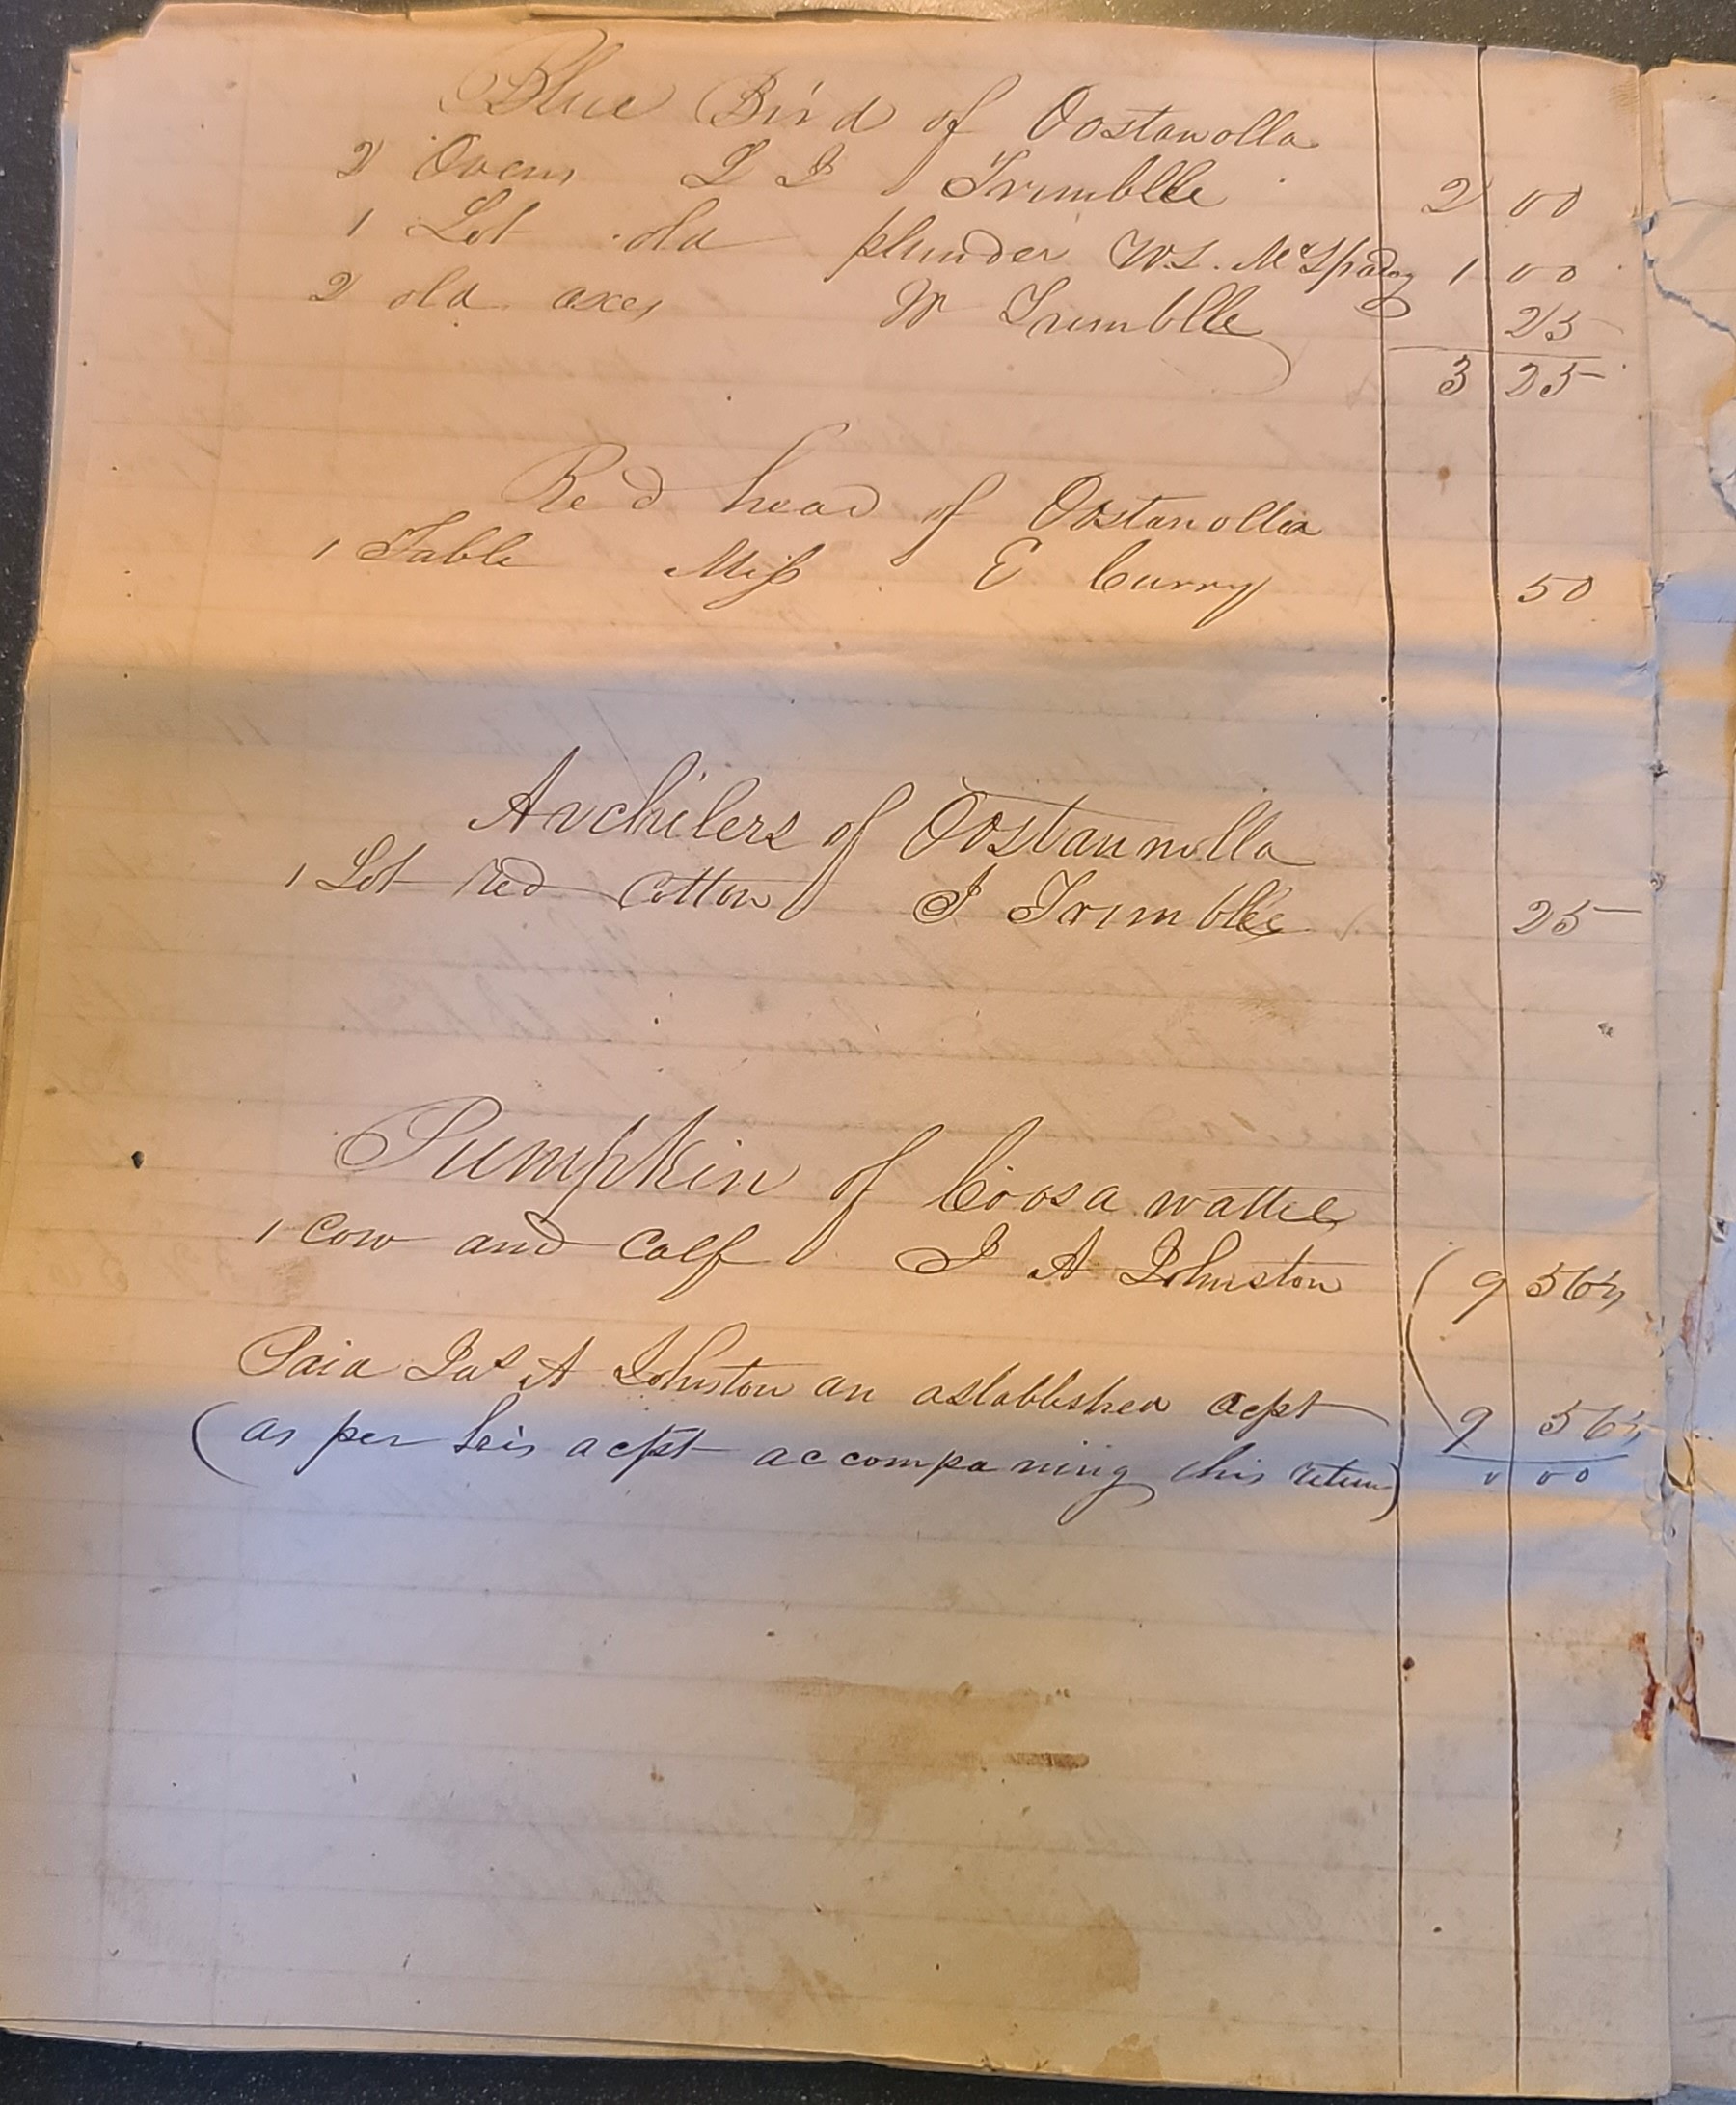 Blue Bird of Oostanolla
2 Ovens L I Trimblle 2 00
1 Lot old plunder W.S. McSpadd 1 00
2 old axes W Trimblle 25
3 25
Red head of Oostanolla
1 Table Miss E Curry 50
Archilers of Oostannolla
1 Lot red cotton J Trimblle 25
Pumpkin of Coosawattee
1 cow and calf J A Johnston ( 9 56¼
Paid Jas A Johnston an astablished acpt 9 56¼
(as per his acpt accompaning this return) 0 00